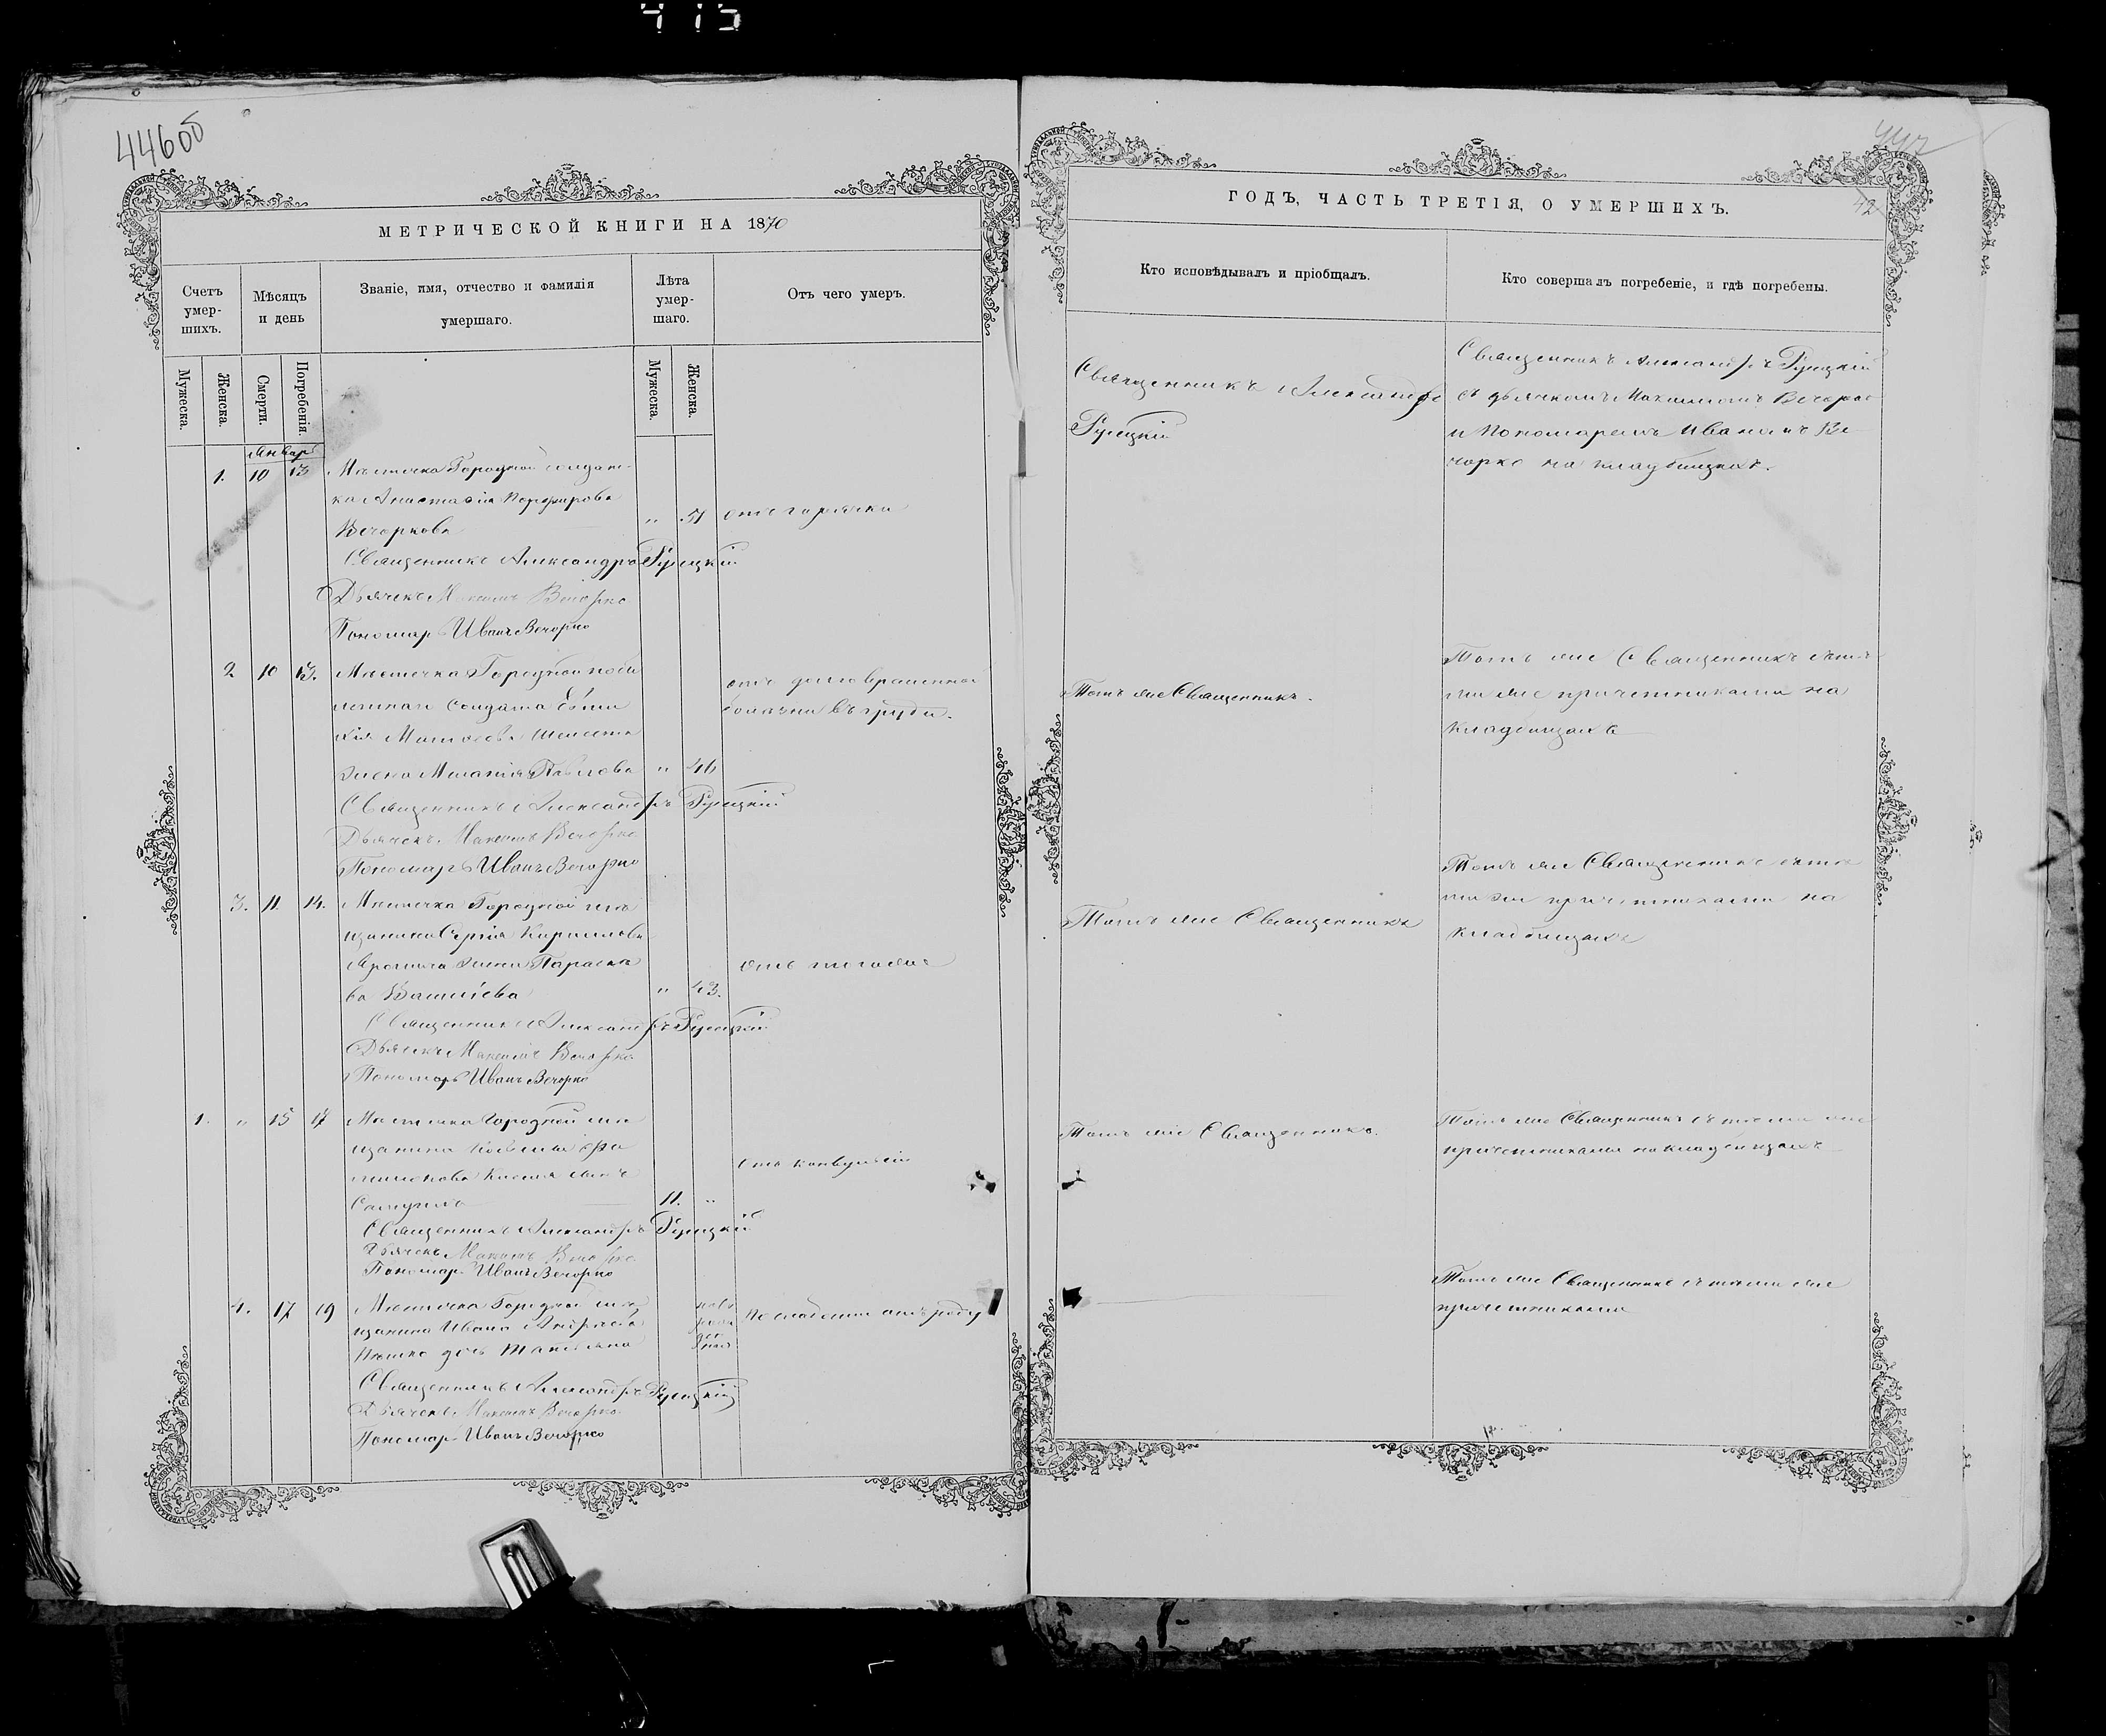 415
446об
МЕТРИЧЕСКОЙ КНИГИ НА 1870
Счетъ умер-шихъ.
Мѣсяцъ и день
Званіе, имя, отчество и фамилія умершаго.
Лѣта умер-шаго.
Отъ чего умеръ.
Мужеска.
Женска.
Смерти.
Погребенія.
Мужеска.
Женска.
Январь
1. 10 13 Мѣстечка Городной солдат-
ка Анастасія Порфирова
Вечоркова " 51 отъ горячки
Священникъ Александръ Рулицкій
Дьячекъ Максимъ Вечорко
Пономарь Иванъ Вечорко
2 10 13. Мѣстечка Городной
солдата
отъ
болѣзни въ груди.
жена Павлова " 46
Священникъ Александръ Рулицкій
Дьячекъ Максимъ Вечорко
Пономарь Иванъ Вечорко
3. 11. 14. Мѣстечка Городной мѣ
щанина Сергія Кириллова
жена Параске
ва Василіева " 43.
Священникъ Александръ Рулицкій
Дьячекъ Максимъ Вечорко
Пономарь Иванъ Вечорко
1. " 15 17 Мѣстечка Городной мѣ
щанина
сынъ
отъ конвульсій
Самуилъ 11. "
Священникъ Александръ Рулицкій
Дьячекъ Максимъ Вечорко
Пономарь Иванъ Вечорко
4. 17 19 Мѣстечка Городной мѣ
щанина Ивана Андреева
дочь Татіяна
ново
рож
ден
ная
по слабости отъ роду
Священникъ Александръ Рулицкій
Дьячекъ Максимъ Вечорко
Пономарь Иванъ Вечорко
447
42
ГОДЪ, ЧАСТЬ ТРЕТІЯ, О УМЕРШИХЪ.
Кто исповѣдывалъ и пріобщалъ.
Кто совершалъ погребеніе, и гдѣ погребены.
Священникъ Александръ
Рулицкій
Священникъ Александръ Рулицкій
съ дьячкомъ Максимомъ Вечорко
и Пономаремъ Иваномъ Ве
чорко на кладбищахъ.
Тотъ же Священникъ.
Тотъ же Священникъ съ тѣ
ми же причетниками на
кладбищахъ
Тотъ же Священникъ
Тотъ же Священникъ съ тѣ
ми же причетниками на
кладбищахъ
Тотъ же Священникъ.
Тотъ же Священникъ съ тѣми же
причетниками на кладбищахъ
Тотъ же Священникъ съ тѣми же
причетниками